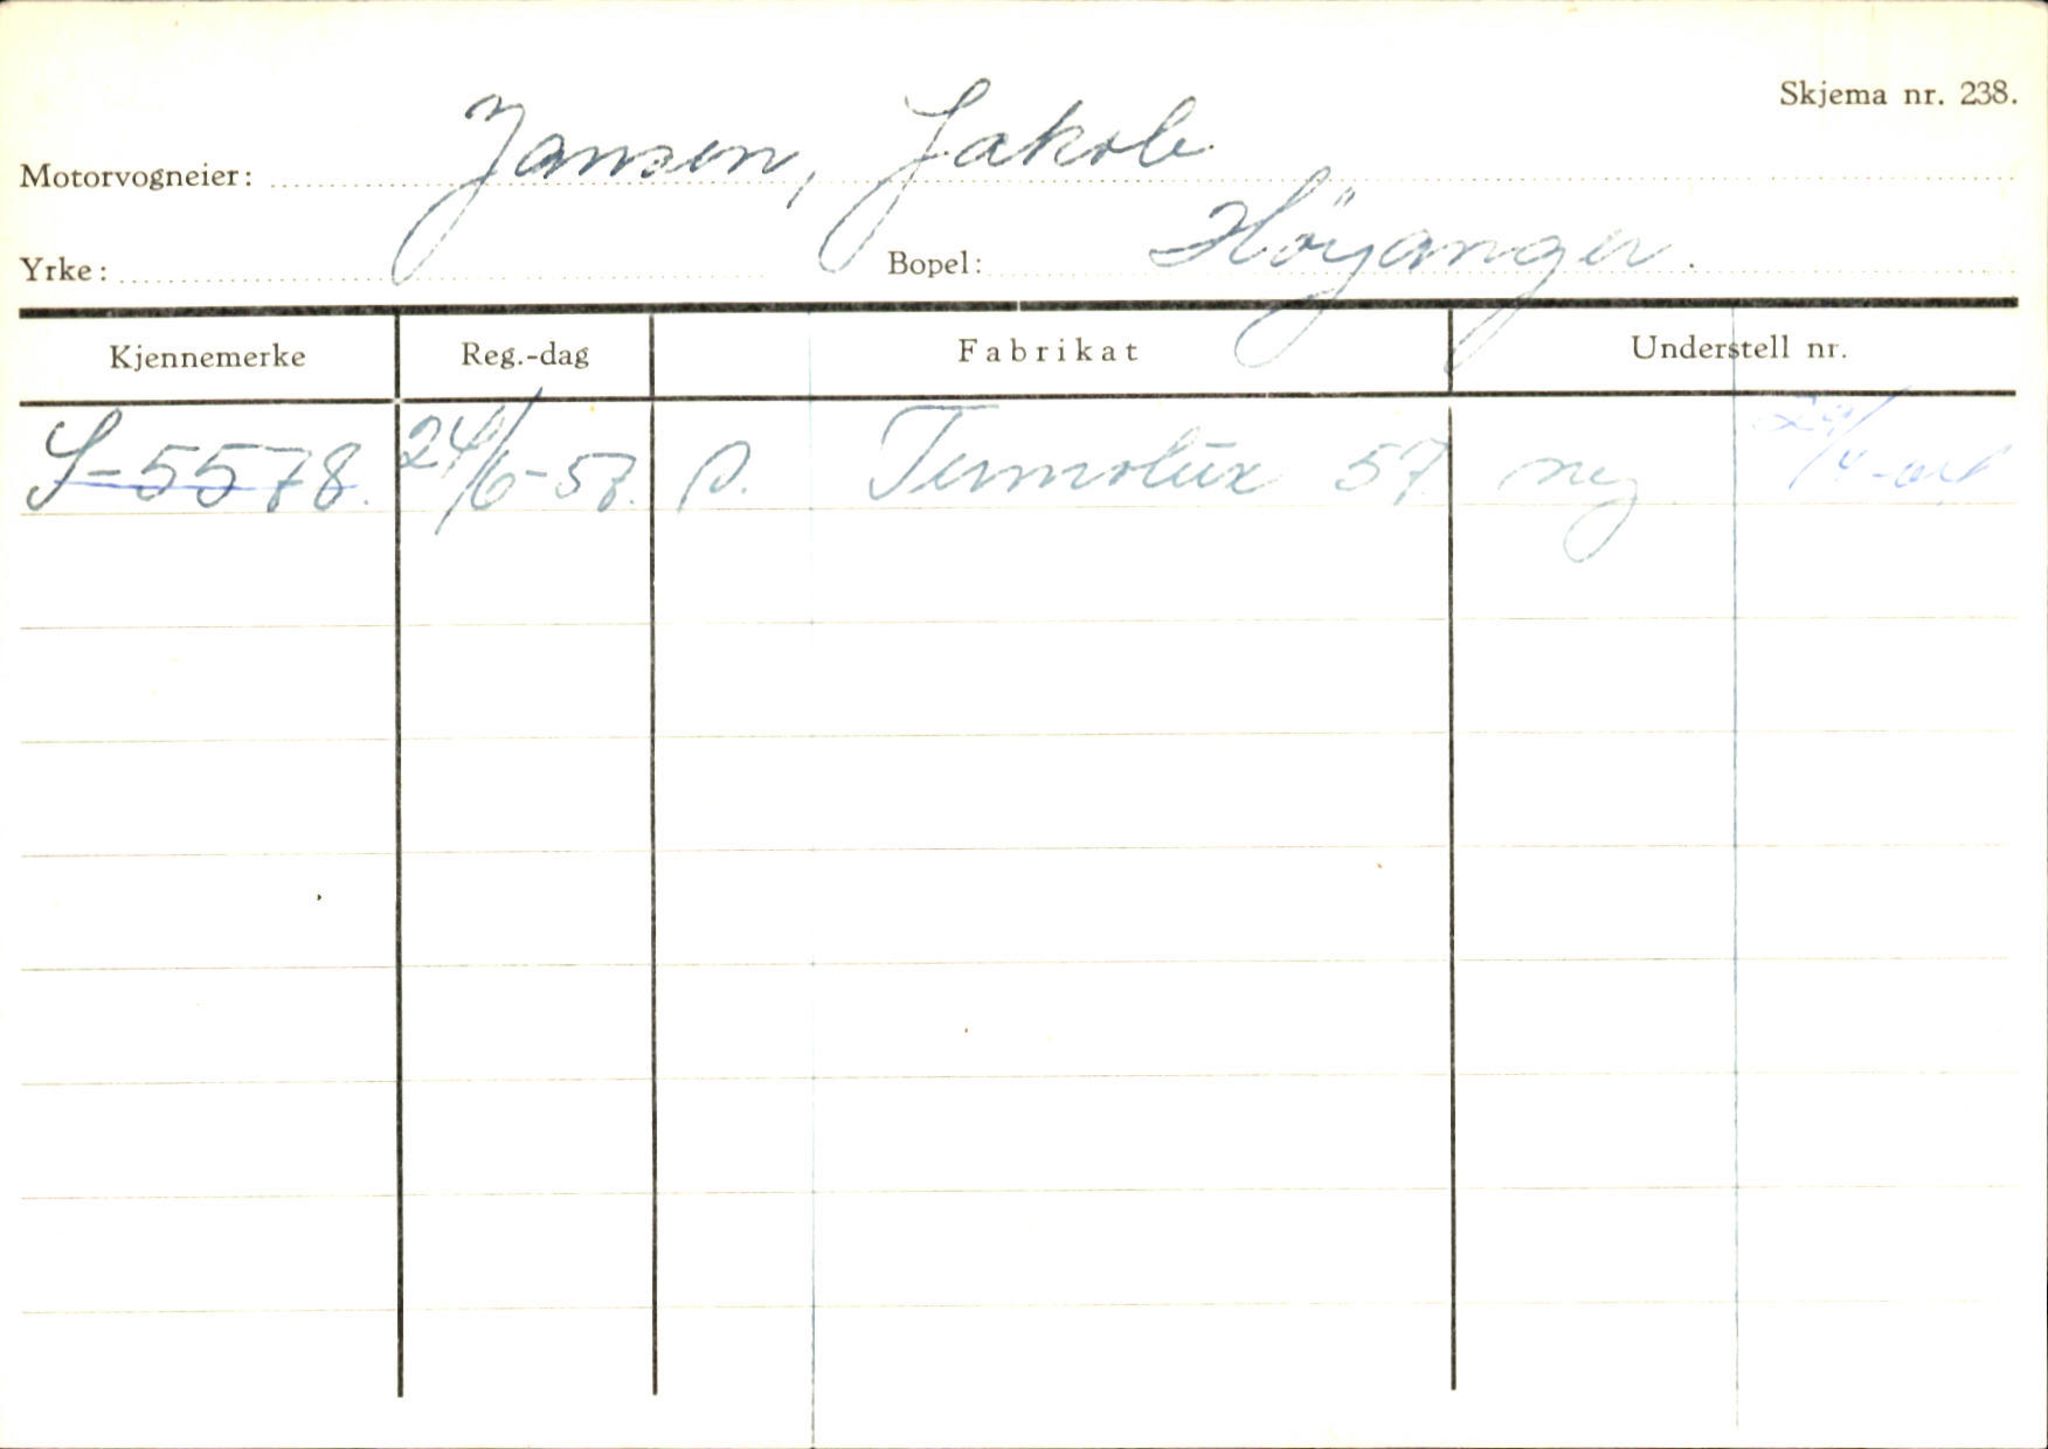 Skjema nr. 238.
Motorvogneier: Jansen, Jakob
Yrke: Bopel: Höyanger.
Kjennemerke Reg.-dag Fabrikat Understell nr.
S-5578. 24/6-57. P. Ternolux 57 ny